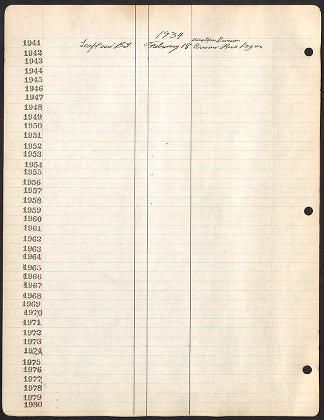 1934
1941 February 18
1942
1943
1944
1945
1946
1947
1948
1949
1950
1951
1952
1953
1954
1955
1956
1957
1958
1959
1960
1961
1962
1963
1964
1965
1966
1967
1968
1969
1970
1971
1972
1973
1974
1975
1976
1977
1978
1979
1980